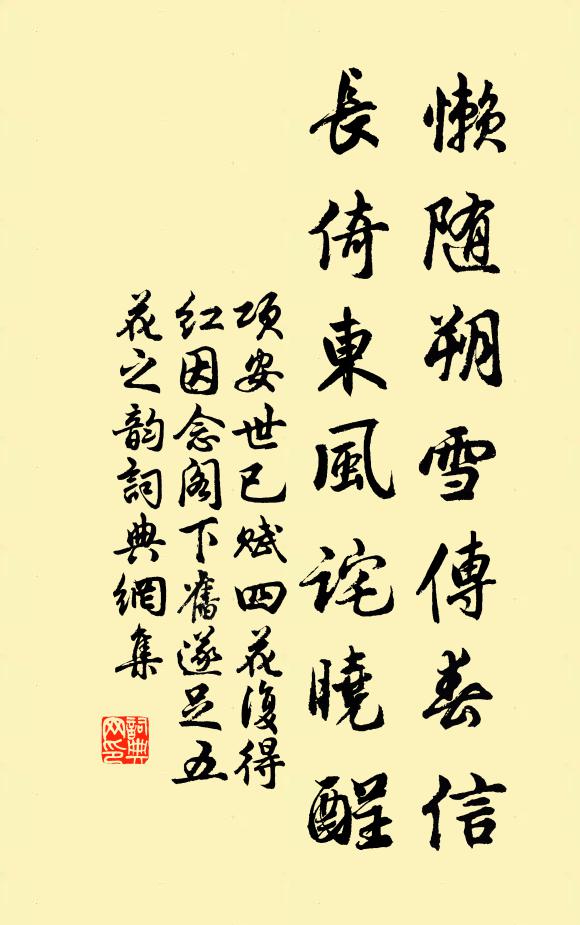 懶随朔雪傳春信
長倚東風詫曉醒
項安世已赋四花復得
红因念阁下舊遂足五
花之韵詞典網集
詞典网印